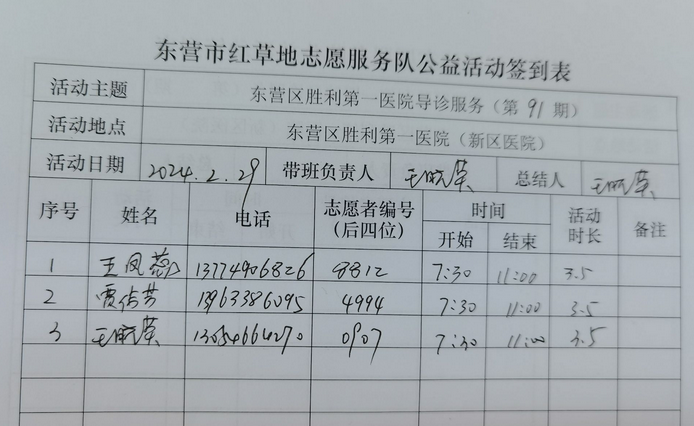 东营市红草地志愿服务队公益活动签到表
活动主题 东营区胜利第一医院导诊服务（第 91 期）
活动地点 东营区胜利第一医院（新区医院）
活动日期 2024.2.29 带班负责人 王晓荣 总结人 王晓荣
序号 姓名 电话 志愿者编号（后四位） 时间 开始 结束 活动时长 备注
1 王凤蕊 13774906826 8812 7:30 11:00 3.5
2 贾佔芳 13963386095 4994 7:30 11:00 3.5
3 王晓荣 13054664270 0907 7:30 11:00 3.5